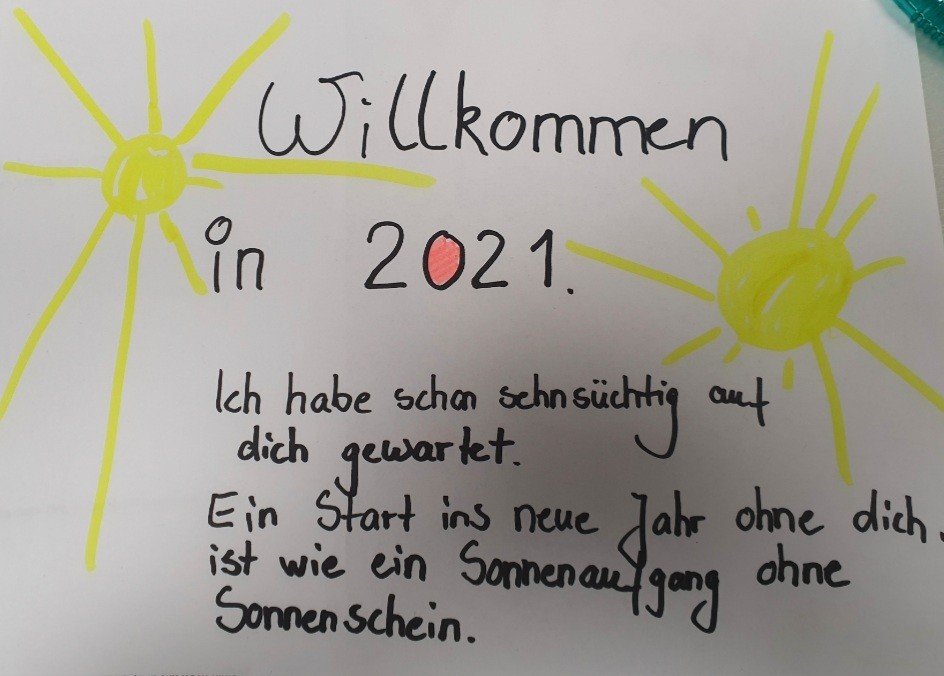 Willkommen
in 2021.
Ich habe schon sehnsüchtig auf
dich gewartet.
Ein Start ins neue Jahr ohne dich.
ist wie ein Sonnenaufgang ohne
Sonnenschein.